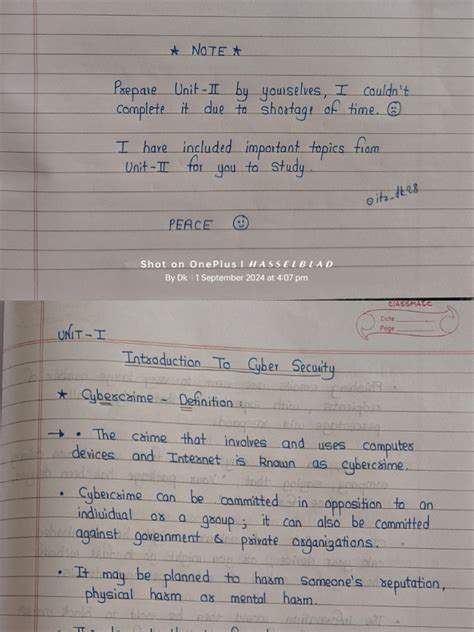 ★ NOTE ★
Prepare Unit-II by yourselves, I couldn't
complete it due to shortage of time. ☹
I have included important topics from
Unit-II for you to study.
@itz_dk28
PEACE ☺
Shot on OnePlus | HASSELBLAD
By Dk | 1 September 2024 at 4:07 pm
CLASSMATE
Date
Page
UNIT-I
Introduction To Cyber Security
★ Cybercrime - Definition :
→ • The crime that involves and uses computer
devices and Internet is known as cybercrime.
• Cybercrime can be committed in opposition to an
individual or a group ; it can also be committed
against government & private organizations.
• It may be planned to harm someone's reputation,
physical harm or mental harm.